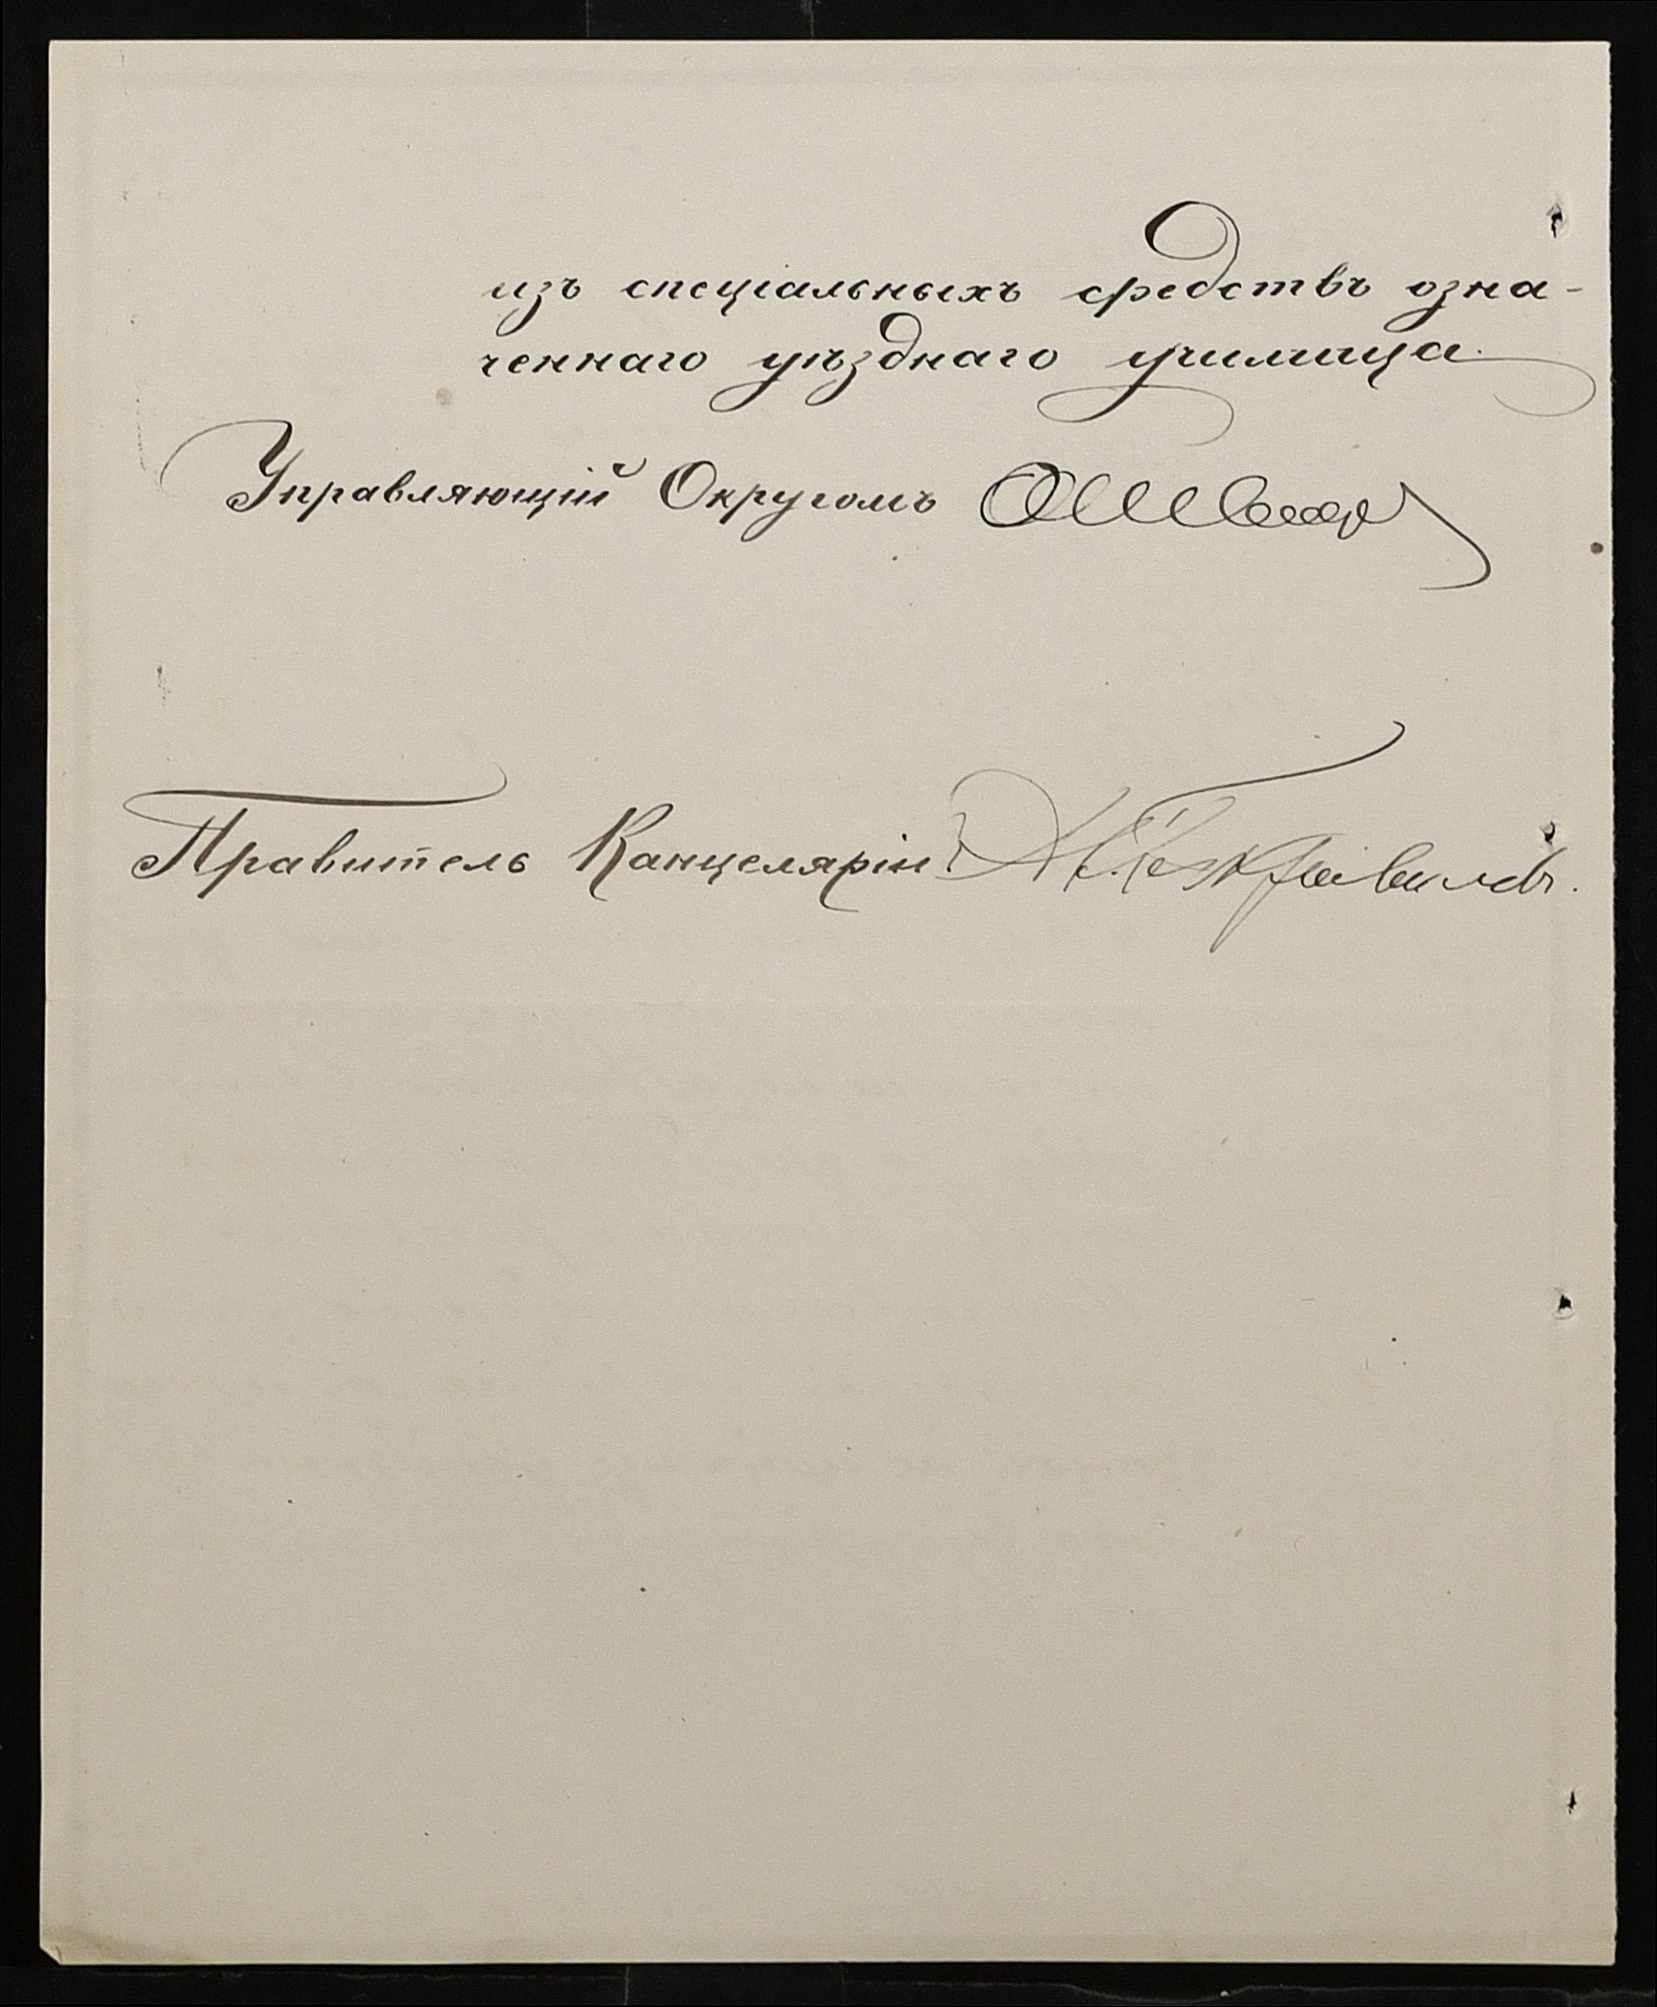 изъ спеціальныхъ средствъ озна-
ченнаго уѣзднаго училища.
Управляющій Округомъ
Правитель Канцеляріи